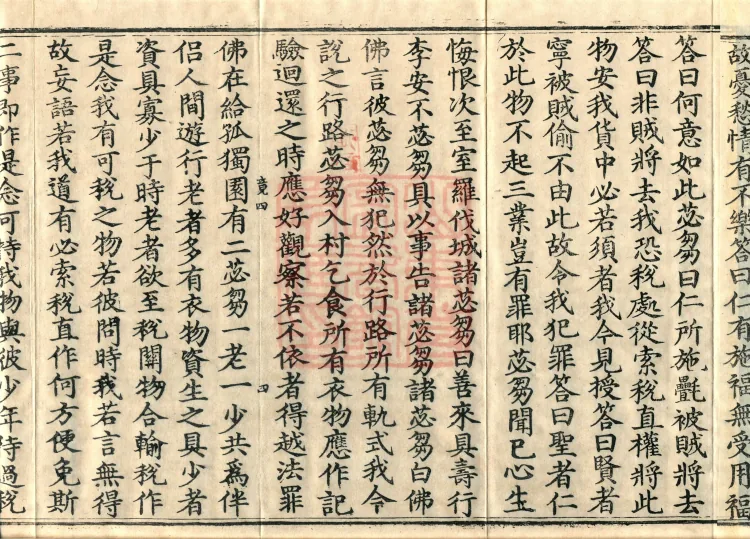 故憂愁情有不樂答曰仁有施福無受用福
答曰何意如此苾芻曰仁所施㲲被賊將去
答曰非賊將去我恐稅處從索稅直權將此
物安我貨中必若須者我今見授答曰賢者
寧被賊偷不由此故令我犯罪答曰聖者仁
於此物不起三業豈有罪耶苾芻聞已心生
悔恨次至室羅伐城諸苾芻曰善來具壽行
李安不苾芻具以事告諸苾芻諸苾芻白佛
佛言彼苾芻無犯然於行路所有軌式我今
說之行路苾芻入村乞食所有衣物應作記
驗迴還之時應好觀察若不依者得越法罪
竟四 四
佛在給孤獨園有二苾芻一老一少共為伴
侶人間遊行老者多有衣物資生之具少者
資具寡少于時老者欲至稅關物合輸稅作
是念我有可稅之物若彼問時我若言無得
故妄語若我道有必索稅直作何方便免斯
二事即作是念可持我物與彼少年待過稅